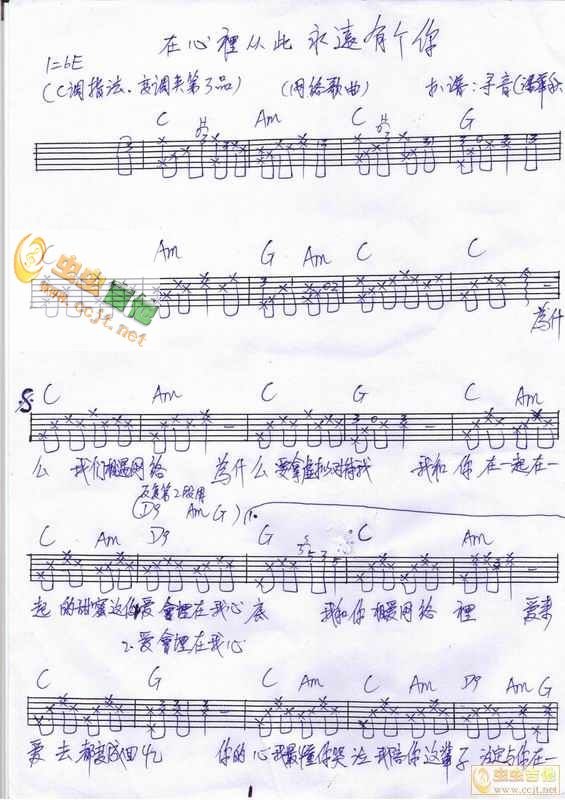 在心裡从此永遠有个你
1=bE
(C调指法、变调夹第3品) (网络歌曲) 扒谱:寻音
C Am C G
C Am G Am C C
虫虫吉他
www.ccjt.net
為什
C Am C G C Am
么 我们相遇网络 為什么要拿虚拟对待我 我和你在一起在一
反复第2段用
(D9 Am G) 1.
C Am D9 G C Am
起的甜蜜这份爱會埋在我心底 我和你相遇网络裡 爱来
2.爱會埋在我心
C G C Am C Am D9 Am G
爱去都變成回忆 你的心我最懂你哭泣我陪你这辈子注定与你在一
1
虫虫吉他
www.ccjt.net